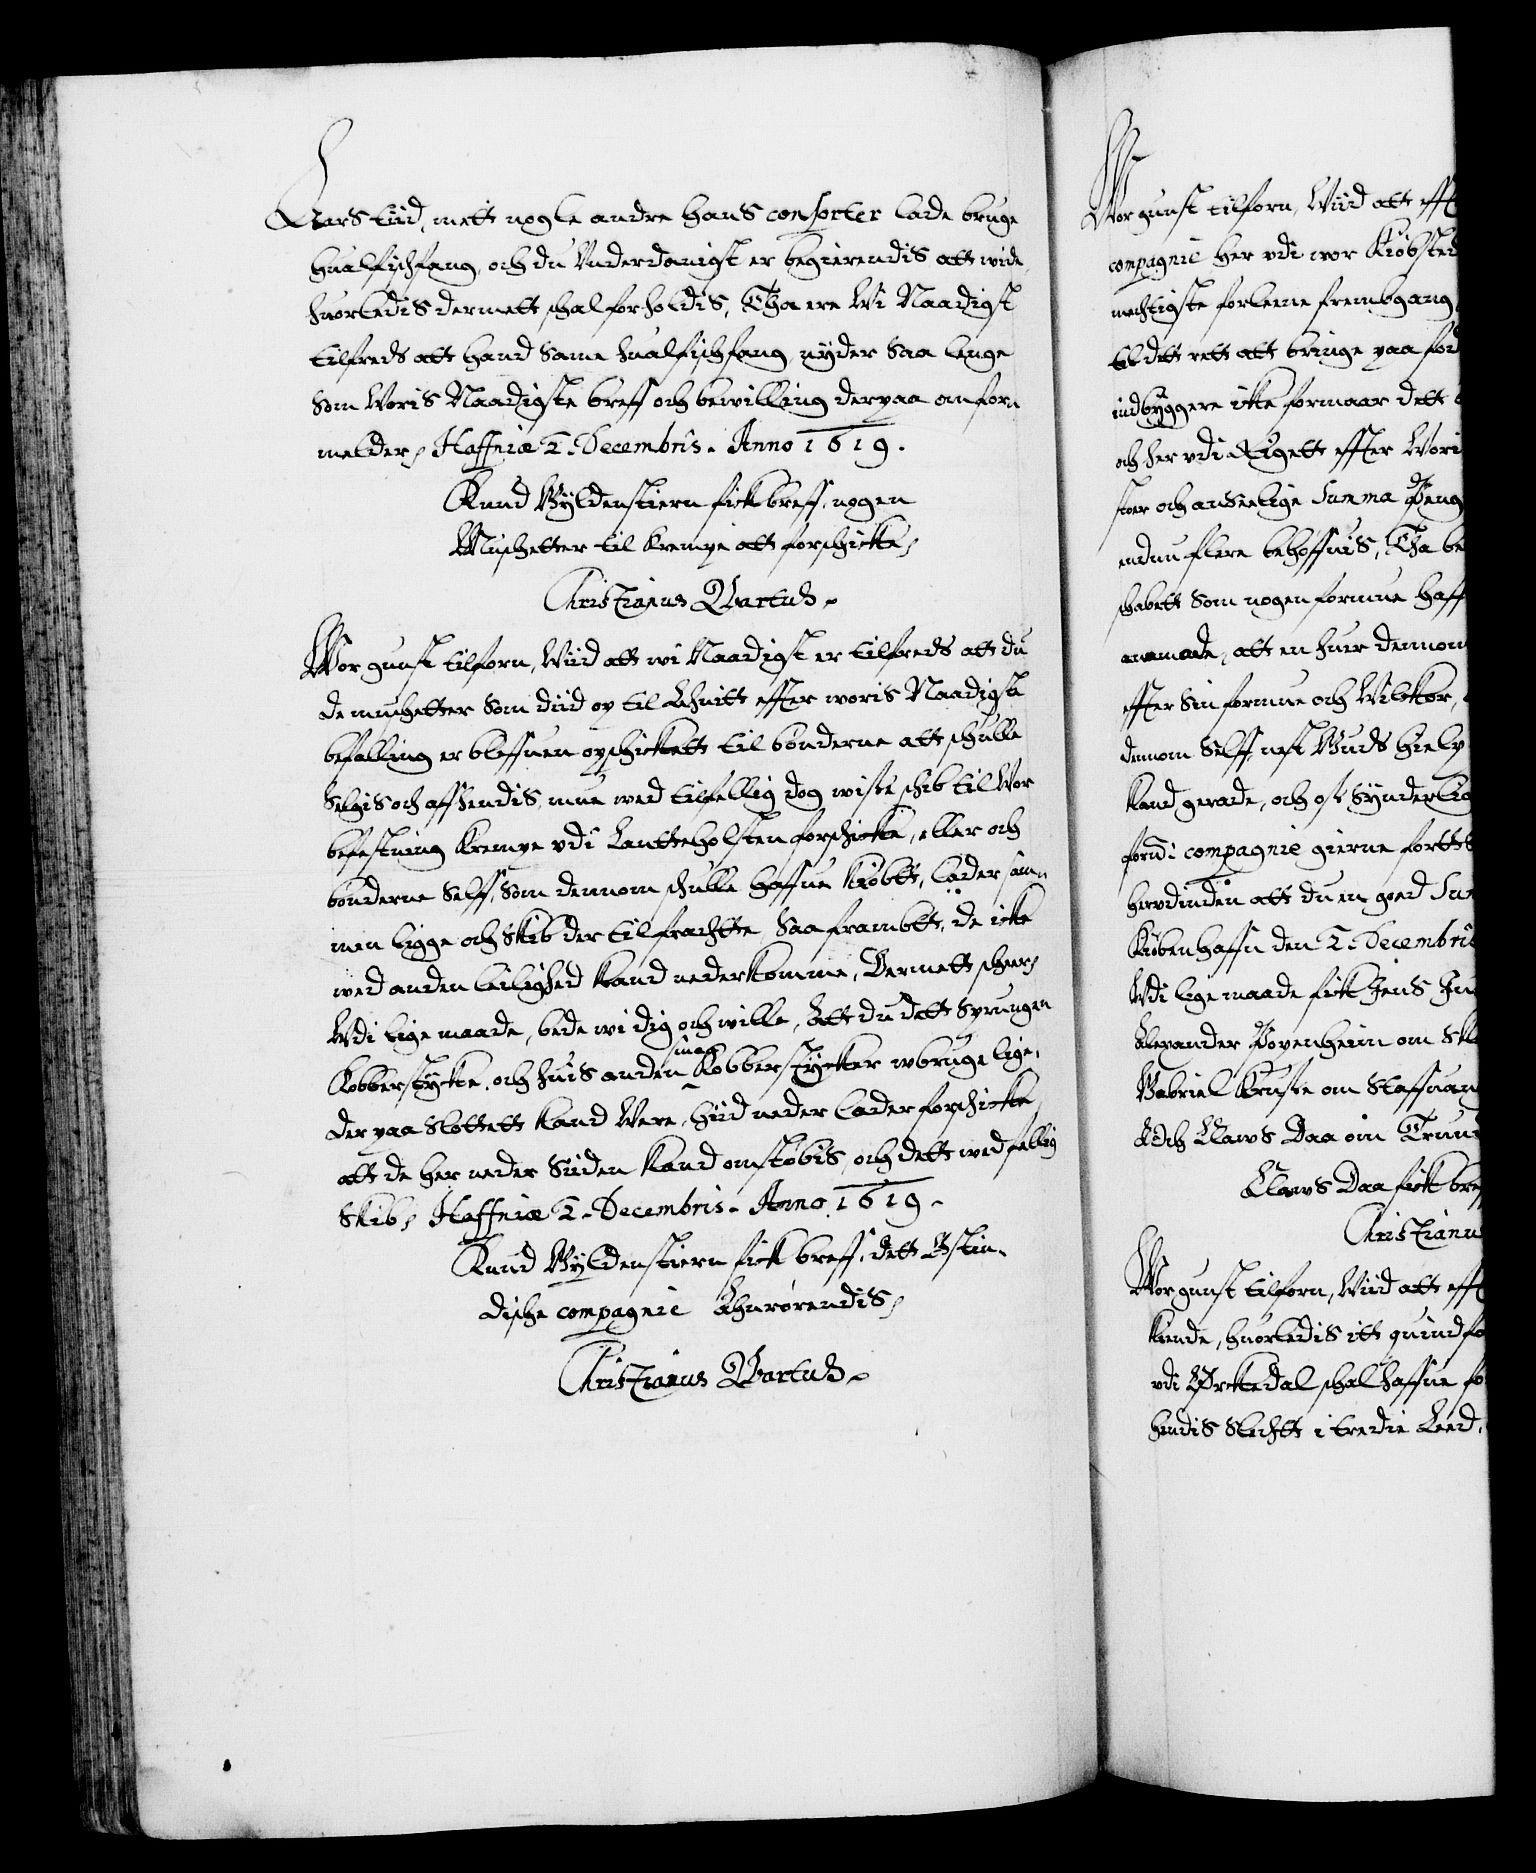 Aars tiid, mett nogle andre hans consorter lade bruge
hualfischfang, och du Vnderdanigst er begierendis att wide,
huorledis dermett schal forholdis, Tha ere Wi Naadigst
tilfreds att hand same hualfischfang nÿder saa lenge
som Woris Naadigste breff och bewilling derpaa omfor:
melder, Haffniæ 2. Decembris. Anno 1619.
Knud Gÿldenstiern fick breff, nogen
Muschetter til Krempe att forschicke,
Christianus Qvartus.
Wor gunst tilforn, Wiid att wi Naadigst er tilfreds att du
de muschetter som diid op til Lehnitt effter woris Naadigste
befalling er bleffuen opschickett til bønderne att schulle
selgis och affhendis, mue wed tilfellig dog wisse schib til Wor
befestning Krempe vdi Landtteholsten forschicke, eller och
bønderne selff, som dennom schulle haffue kiøbtt, lader sam:
men ligge och skib der til fractte saa frambtt, de icke
wed anden leilighed kand nederkomme, Dermett scheer,
Vdi lige maade, bede wi dig och wille, Att du dett sprungen
Kobberstÿcke, och huis anden smaa Kobberstÿcker wbrugelige,
der paa Slottett kand Were, hiid neder lader forschicke,
att de her neder siden kand omstøbis, och dett wed fellig
skib, Haffniæ 2. Decembris. Anno 1619.
Knud Gÿldenstiern fick breff, dett Ostin:
dische compagnie Ahnrørendis,
Christianus Qvartus.
Wor gunst tilforn, Wiid att efft
compagnie her vdi wor Kiøbsted
mechtigste forleene frembgang
til ditt rett att bringe paa ford
indbÿggere icke formaar dett
och her vdi Rigett effter Wori
stoer och anseelige Summa Peng
endnu flere behoffuis, Tha be
schabett som nogen formue haff
anmode, att en huer dennom
effter sin formue och Wilckor,
dennom selff nest Guds hielp
kand gerade, och os synderlig
fornd: compagnie gierne fortts
herudinden att du en goed Sum
Kiøbenhaffn den 2. Decembris
Vdi lige maade fick Jens Ju
Alexander Papenheim om Skl
Gabriel Kruse om Staffuan
Och Claus Daa om Trund
Claus Daa fick bref
Christianu
Wor gunst tilforn, Wiid att efft
kiende, huorledis itt quindfo
vdi Ørckedal schal haffue fo
hendis slechtt i tredie Leed,